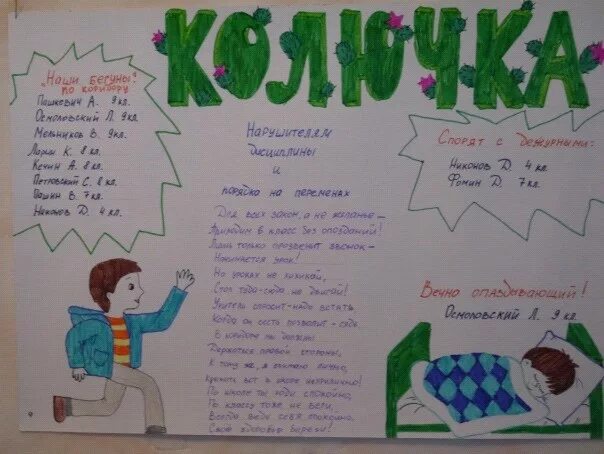 КОЛЮЧКА
"Наши бегуны"
по коридору
Пашкович А. 9 кл.
Осмоловский Л. 9 кл.
Мельников В. 9 кл.
Ларин К. 8 кл.
Кечин А. 8 кл.
Петровский С. 8 кл.
Пашин В. 7 кл.
Никонов Д. 4 кл.
Нарушителям
дисциплины
и
порядка на переменах
Для всех закон, а не желанье –
Приходим в класс без опозданий!
Лишь только прозвенит звонок –
Начинается урок!
На уроках не хихикай,
Стол туда-сюда не двигай!
Учитель спросит – надо встать,
Когда он сесть позволит – сядь.
В коридоре мы должны
Держаться правой стороны,
К тому же, я считаю лично,
Кричать вот в школе неприлично!
По школе ты ходи спокойно,
По классу тоже не беги,
Всегда веди себя спокойно,
Своё здоровье береги!
Спорят с дежурными:
Никонов Д. 4 кл.
Фомин Д. 7 кл.
Вечно опаздывающий!
Осмоловский Л. 9 кл.